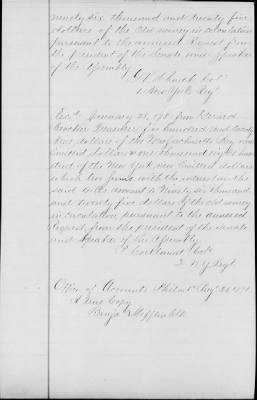 ninety six thousand and twenty five
dollars of the old money in circulation
pursuant to the annexed Request from
the president of the Senate and Speaker
of the Assembly
Colt
1 New York Regt
Recd January 21, 178 from
five hundred and twenty
two dollars of the
dollars & one thousand eight hundred
of the New York new Emitted dollars
which two sums with the interest on the
said bills amount to Ninety six thousand
and twenty five dollars of the old money
in circulation pursuant to the annexed
Request from the president of the senate
and Speaker of the Assembly
P Cortlandt Colo
2 N Y Regt
Office of Accounts Philada Augt
A True Copy
Benja Clk